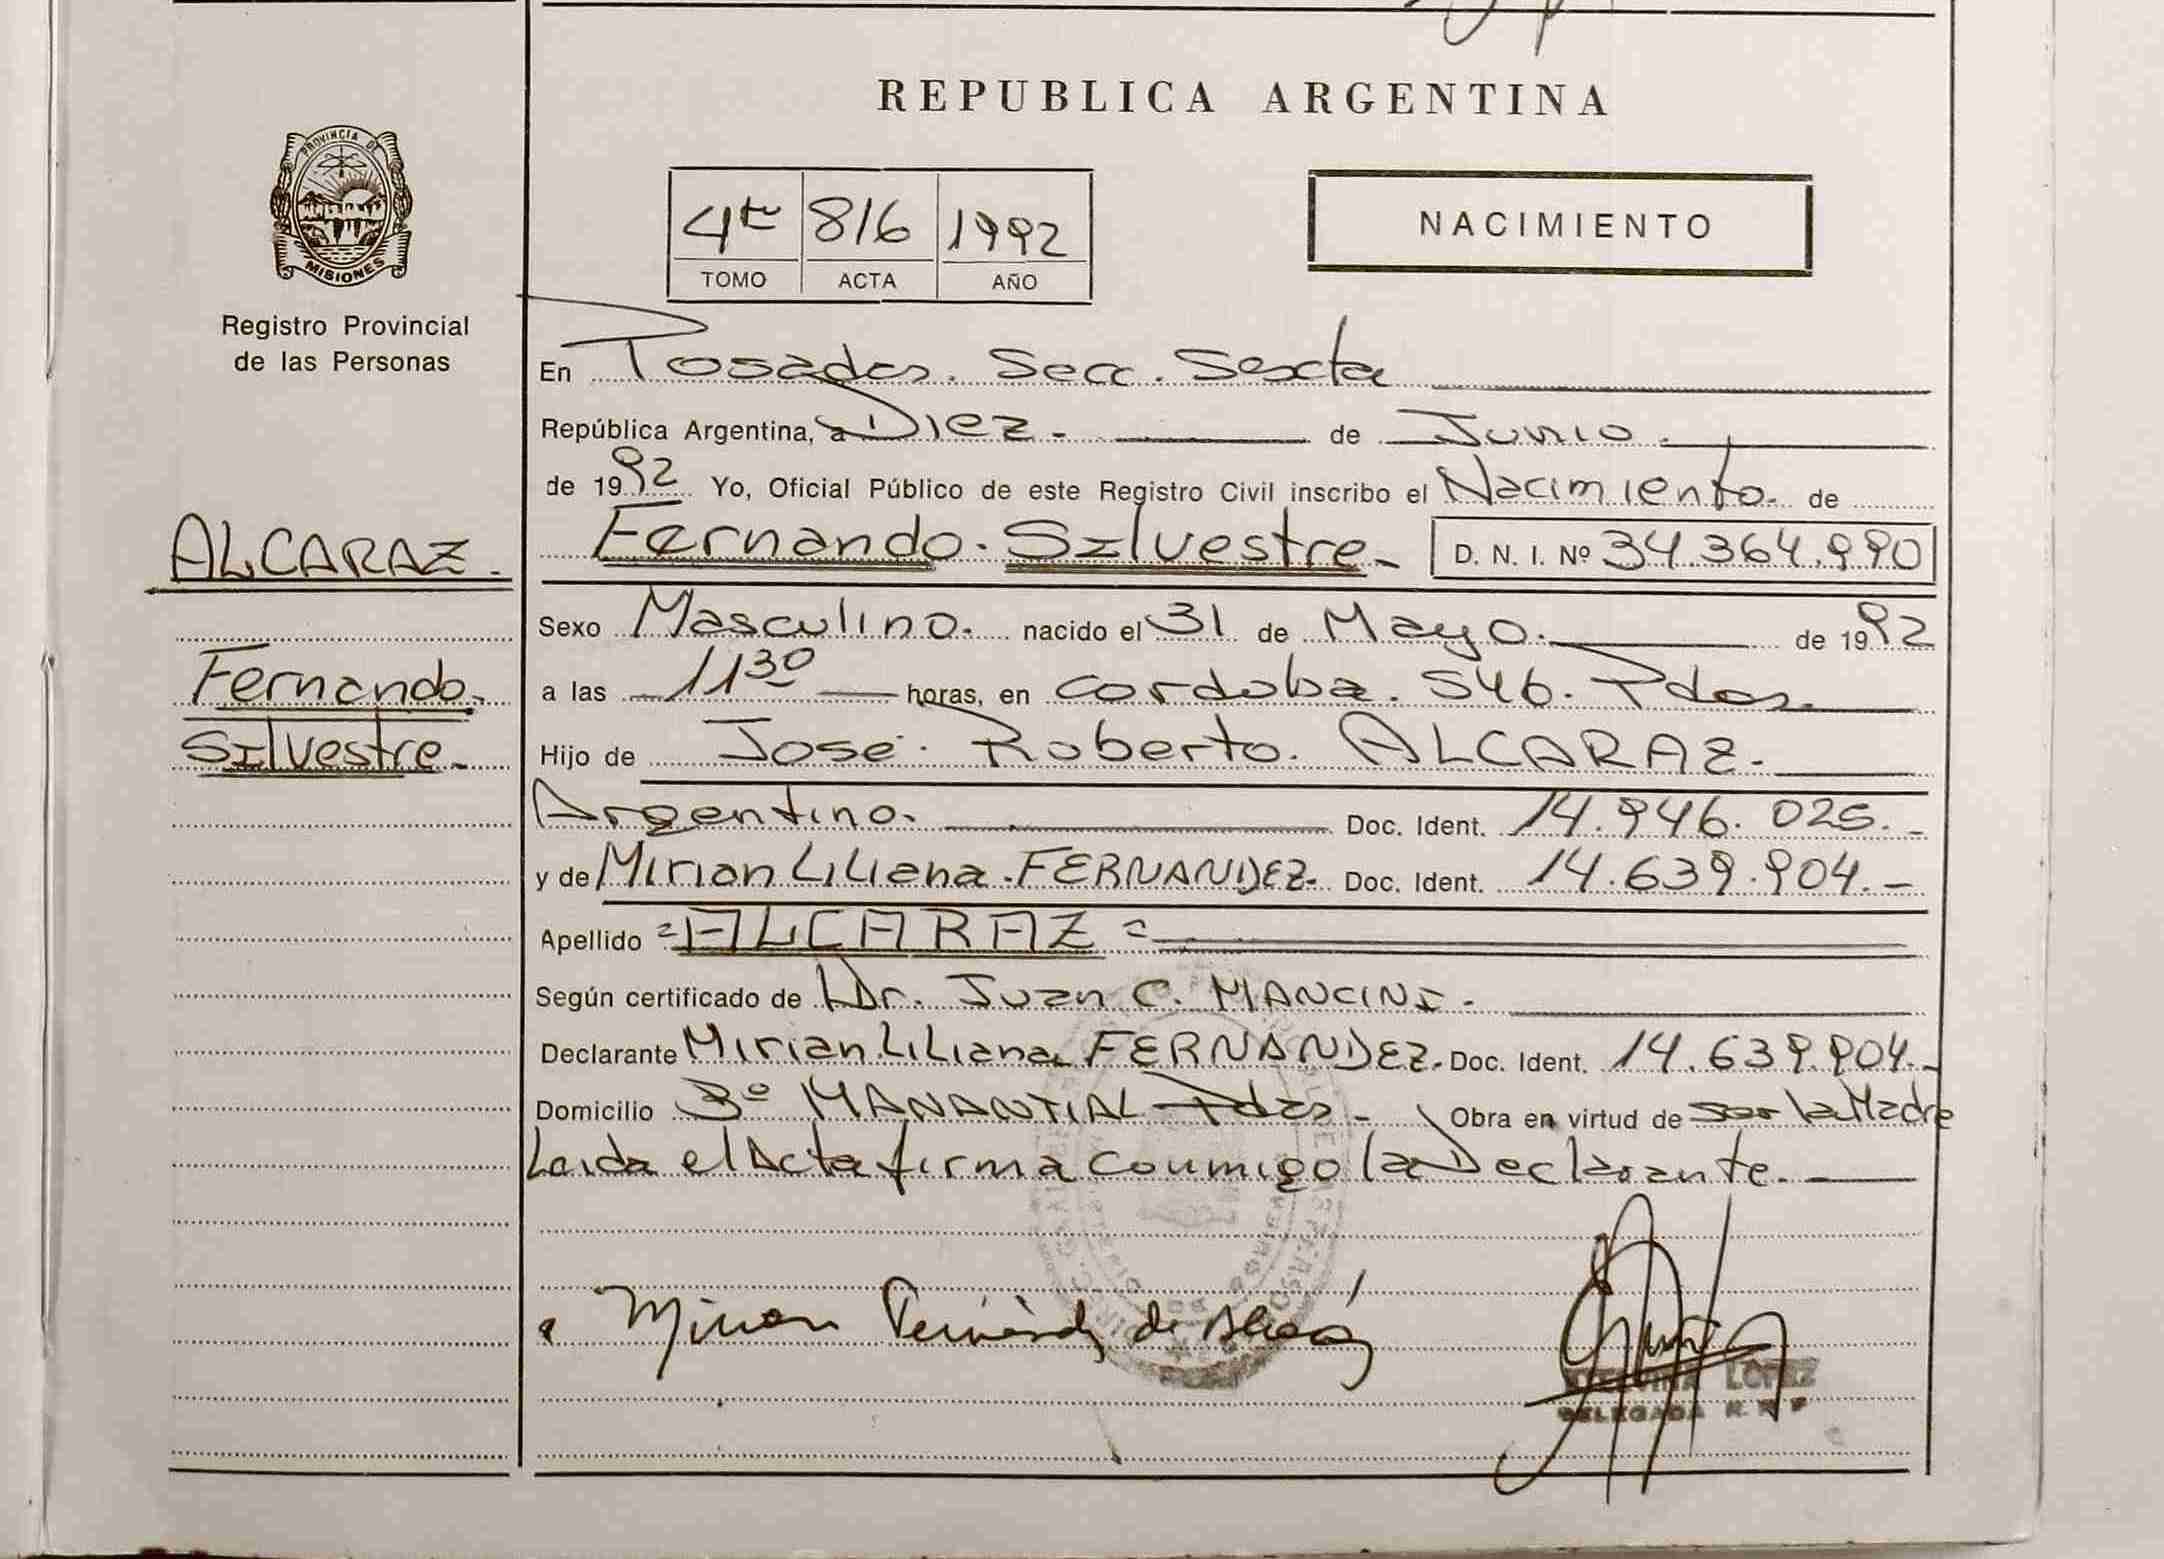 REPUBLICA ARGENTINA
PROVINCIA DE
MISIONES
Registro Provincial
de las Personas
4to 816 1992
TOMO ACTA AÑO
NACIMIENTO
En Posadas. Secc. Sexta
República Argentina, a Diez. de Junio.
de 1992 Yo, Oficial Público de este Registro Civil inscribo el Nacimiento. de
ALCARAZ.
Fernando. Silvestre. D. N. I. Nº 34.364.990
Sexo Masculino. nacido el 31 de Mayo. de 1992
Fernando.
a las 11 30 horas, en Cordoba. 546. Pdas.
Silvestre.
Hijo de Jose. Roberto. ALCARAZ.
Argentino. Doc. Ident. 14.946.025.-
y de Mirian Liliana. FERNANDEZ. Doc. Ident. 14.639.904.-
Apellido =ALCARAZ=
Según certificado de Dr. Juan C. MANCINI.
Declarante Mirian Liliana FERNANDEZ. Doc. Ident. 14.639.904.-
Domicilio 3º MANANTIAL Pdas - Obra en virtud de ser la Madre
Leida el Acta firma conmigo la Declarante.
Mirian Fernández de Alcaráz
LOPEZ
DELEGADA R. R. P